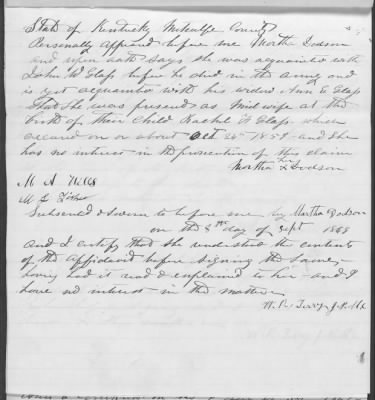 State of Kentucky Metcalfe County
Personally appeared before me Martha Dodson
and upon oath says she was acquainted with
John W Glass before he died in the army and
is yet acquainted with his widow Ann E Glass
that she was present as Mid wife at the
birth of their Child Rachel F Glass which
occured on or about Oct 26th 1859 and she
has no interest in the prosecution of this claim
her
Martha X Dodson
M A
W G
Subscribed & sworn to before me by Martha Dodson
on the 8th day of Sept 1868
and I certify that she understood the contents
of the Affidavid before signing the same,
having had it read & explained to her - and I
have no interest in the matter
W. R. Terry J. P. M.C.